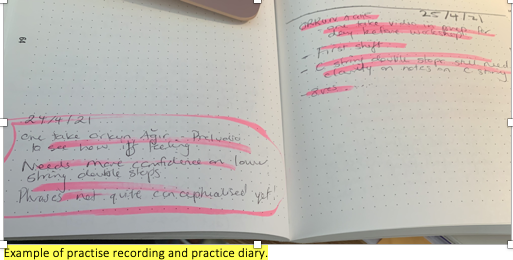 64
24/4/21
One take Orkun Ağır... Preludio
to see how it's feeling
Needs more confidence on lower
string double stops
Phrases not quite conceptualised yet!
25/4/21
one take video in prep for
day before workshop
- First shift
- C string double stops still need
clarity on notes on C string
Example of practise recording and practice diary.